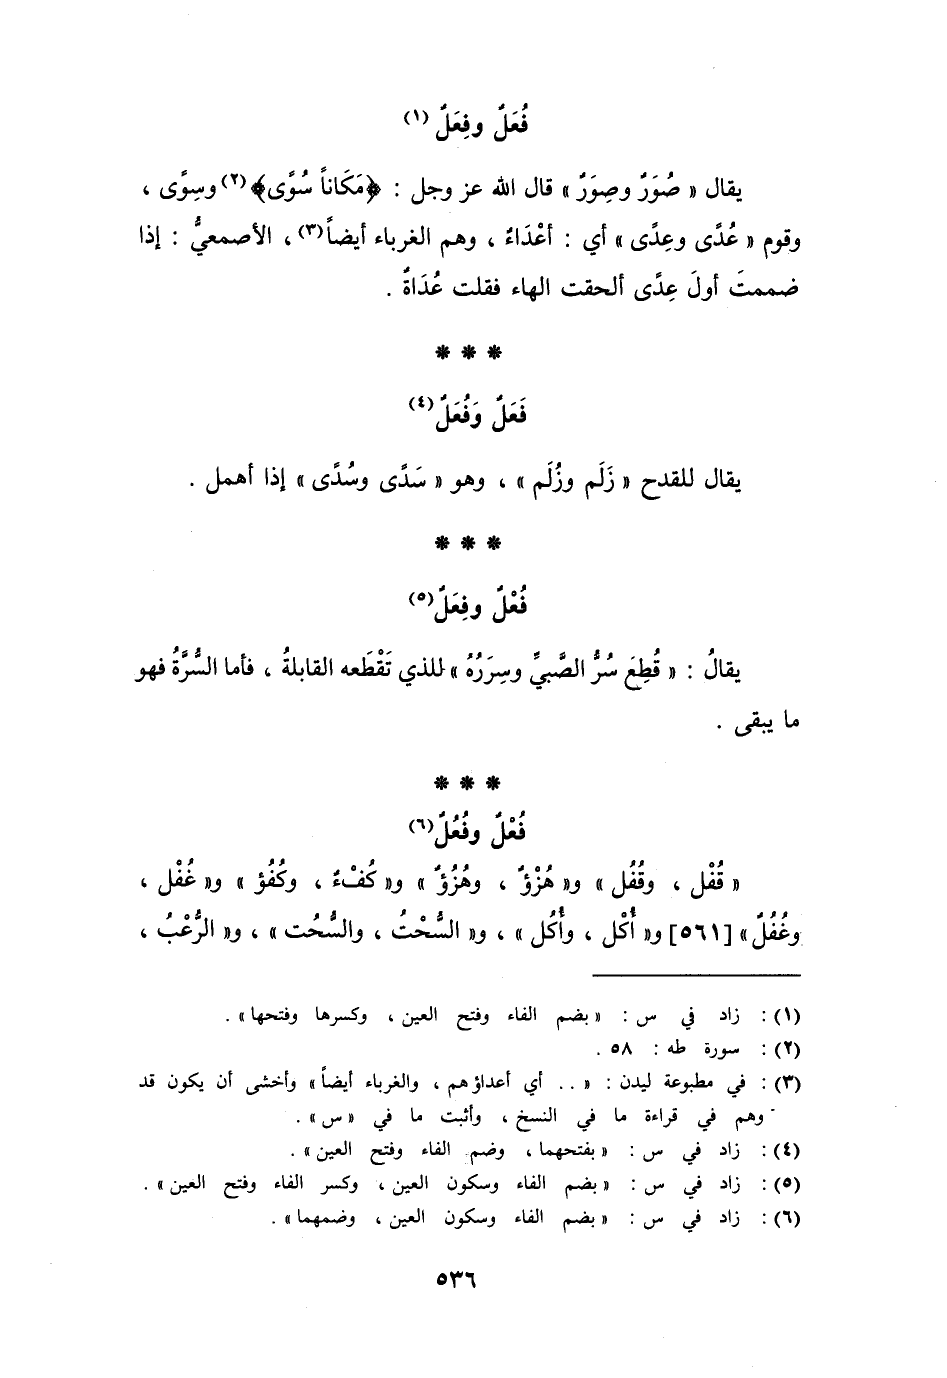 فُعَلٌ وفِعَلٌ (١)
يقال « صُوَرٌ وصِوَرٌ » قال الله عز وجل : ﴿مَكَاناً سُوًى﴾(٢) وسِوًى ،
وقوم « عُدًى وعِدًى » أي : أعْدَاءٌ ، وهم الغرباء أيضاً(٣) ، الأصمعيُّ : إذا
ضممتَ أولَ عِدًى ألحقت الهاء فقلت عُدَاةٌ .
* * *
فَعَلٌ وَفُعَلٌ (٤)
يقال للقدح « زَلَم وزُلَم » ، وهو « سَدًى وسُدًى » إذا أهمل .
* * *
فُعْلٌ وفِعَلٌ (٥)
يقالُ : « قُطِعَ سُرُّ الصَّبيِّ وسِرَرُهُ » للذي تَقْطَعه القابلةُ ، فأما السُّرَّةُ فهو
ما يبقى .
* * *
فُعْلٌ وفُعُلٌ (٦)
« قُفْل ، وقُفُل » و« هُزْؤٌ ، وهُزُؤٌ » و« كُفْءٌ ، وكُفُؤ » و« غُفْل ،
وغُفُلٌ » [٥٦١] و« أُكْل ، وأُكُل » ، و« السُّحْتُ ، والسُّحُت » ، و« الرُّعْبُ ،
(١) : زاد في س : « بضم الفاء وفتح العين ، وكسرها وفتحها » .
(٢) : سورة طه : ٥٨ .
(٣) : في مطبوعة ليدن : « .. أي أعداؤهم ، والغرباء أيضاً » وأخشى أن يكون قد
وهم في قراءة ما في النسخ ، وأثبت ما في « س » .
(٤) : زاد في س : « بفتحهما ، وضم الفاء وفتح العين » .
(٥) : زاد في س : « بضم الفاء وسكون العين ، وكسر الفاء وفتح العين » .
(٦) : زاد في س : « بضم الفاء وسكون العين ، وضمهما » .
٥٣٦